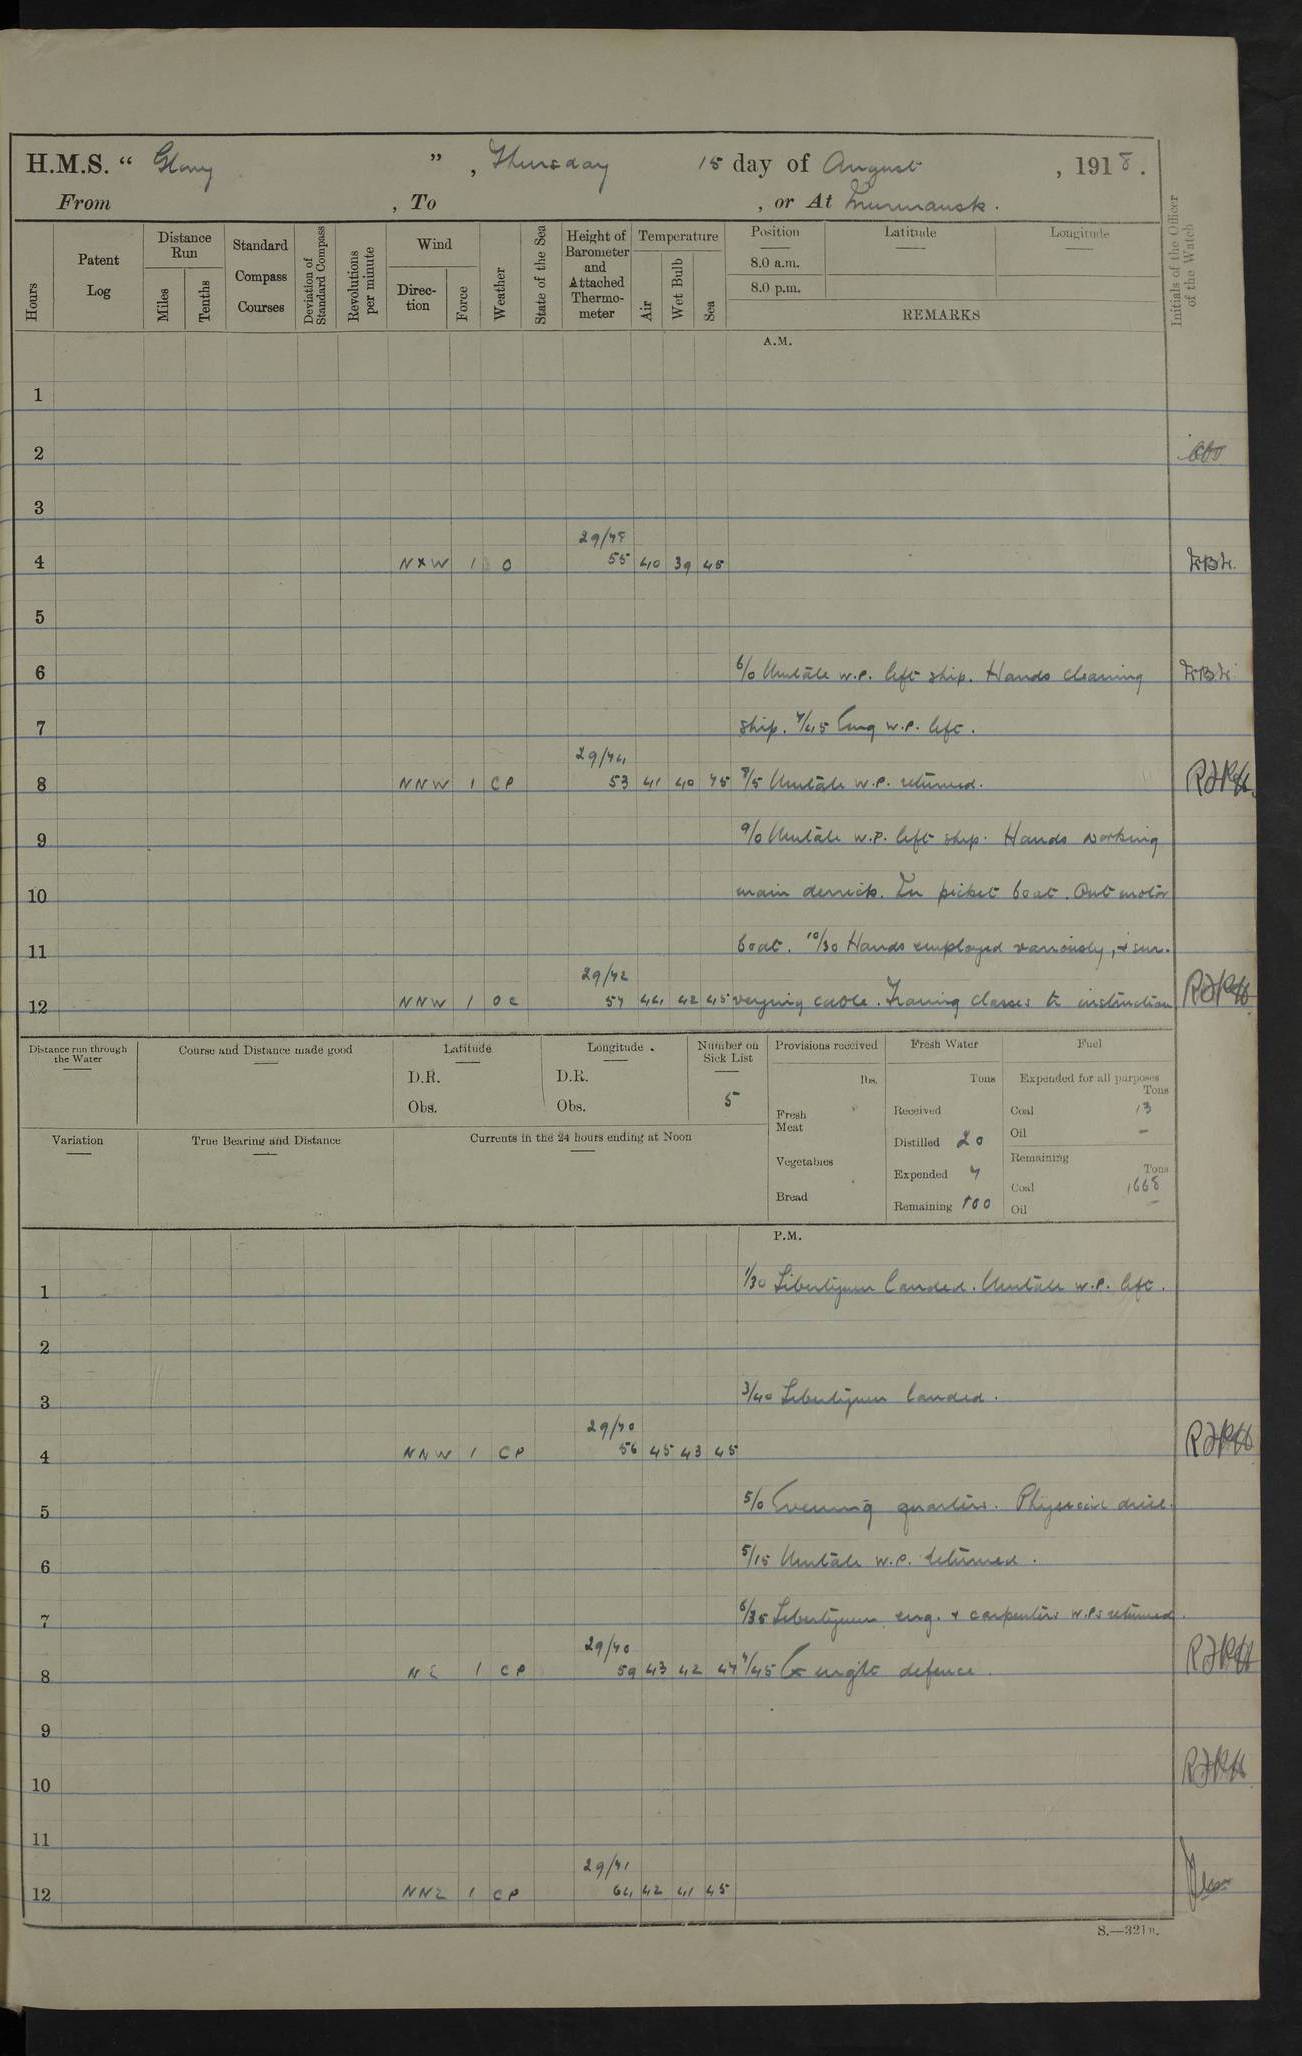 H.M.S. “ Glory ” , Thursday 15 day of August , 1918 .
From , To , or At Murmansk .
Hours
Patent Log
Distance Run
Miles
Tenths
Standard Compass Courses
Deviation of Standard Compass
Revolutions per minute
Wind
Direc- tion
Force
Weather
State of the Sea
Height of Barometer and Attached Thermo- meter
Temperature
Air
Wet Bulb
Sea
Position
8.0 a.m.
8.0 p.m.
Latitude
Longitude
REMARKS
Initials of the Officer of the Watch
A.M.
1
2
3
29/78
4 N×W 1 O 55 40 39 45
5
6 6/0 Umtali w.p. left ship. Hands cleaning
7 ship. 7/45 Eng w.p. left.
29/74
8 NNW 1 CP 53 41 40 45 8/5 Umtali w.p. returned.
9 9/0 Umtali w.p. left ship. Hands working
10 main derrick. In picket boat. Out motor
11 boat. 10/30 Hands employed variously, & sur-
29/72
12 NNW 1 OC 57 44 42 45 veying cable. Training classes to instruction
Distance run through the Water
Course and Distance made good
Latitude
D.R.
Obs.
Longitude
D.R.
Obs.
Number on Sick List
5
Provisions received
lbs.
Fresh Meat
Vegetables
Bread
Fresh Water
Tons
Received
Distilled 20
Expended 7
Remaining 100
Fuel
Expended for all purposes
Tons
Coal 13
Oil –
Remaining
Tons
Coal 1668
Oil –
Variation
True Bearing and Distance
Currents in the 24 hours ending at Noon
P.M.
1 1/30 Libertymen landed. Umtali w.p. left.
2
3 3/40 Libertymen landed.
29/70
4 NNW 1 CP 56 45 43 45
5 5/0 Evening quarters. Physical drill.
6 5/15 Umtali w.p. returned.
7 6/35 Libertymen, eng. & carpenters w.ps returned.
29/70
8 NE 1 CP 59 43 42 47 7/45 Ex night defence.
9
10
11
29/71
12 NNE 1 CP 64 42 41 45
S.—321B.